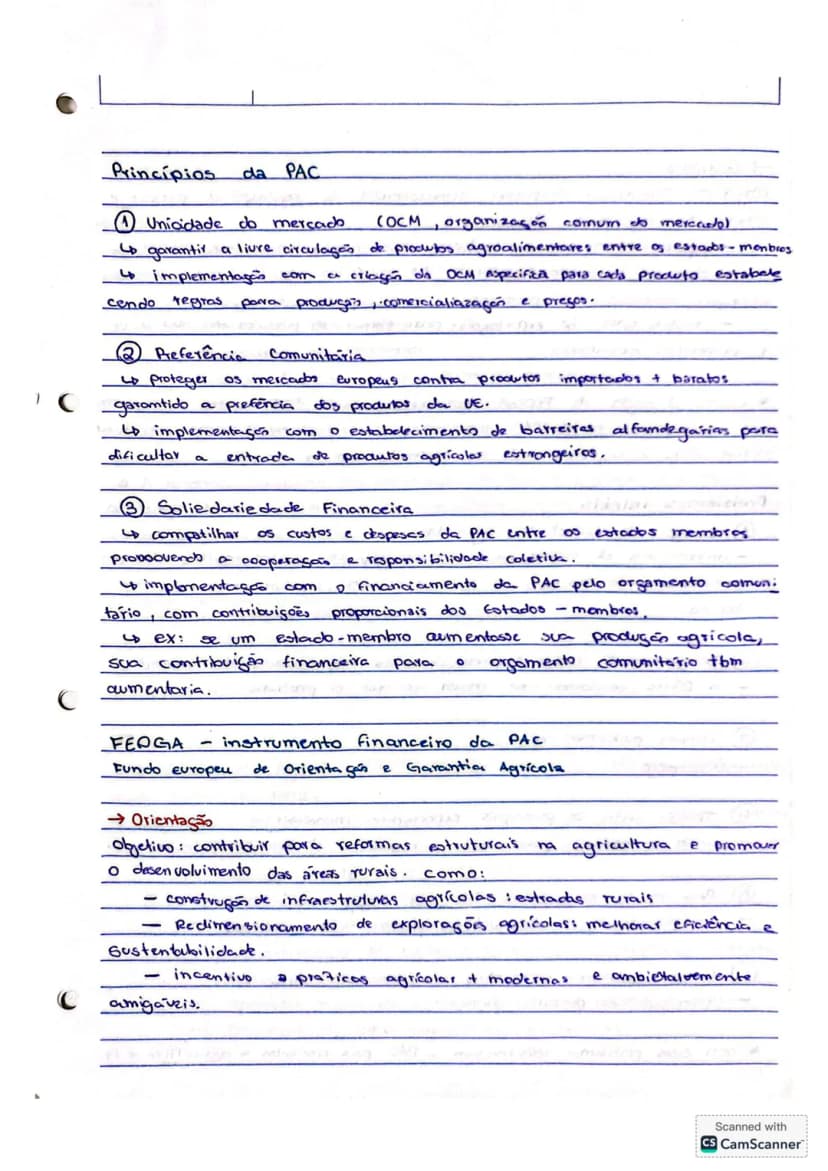 Princípios da PAC
① Unicidade do mercado (OCM, organização comum do mercado)
↳ garantir a livre circulação de produtos agroalimentares entre os estados-menbros
↳ implementação com a criação da OCM específica para cada produto estabele
cendo regras para produção, comercialiazação e preços.
② Preferência Comunitária
↳ Proteger os mercados Europeus contra produtos importados + baratos
garantido a prefência dos produtos da UE.
↳ implementação com o estabelecimento de barreiras alfandegárias para
dificultar a entrada de produtos agrícolas estrangeiros.
③ Soliedariedade Financeira
↳ compatilhar os custos e despesas da PAC entre os estados membros
promovendo a cooperação e responsibilidade coletiva.
↳ implmentação com o financiamento da PAC pelo orçamento comuni
tário, com contribuições proporcionais dos Estados-membros.
↳ ex: se um estado-membro aumentasse sua produção agrícola,
sua contribuição financeira para o orçamento comunitário tbm
aumentaria.
FEOGA - instrumento financeiro da PAC
Fundo europeu de Orientação e Garantia Agrícola
→ Orientação
Objetivo: contribuir para reformas estruturais na agricultura e promover
o desenvolvimento das áreas rurais. como:
- construção de infraestruturas agrícolas: estradas rurais
- Redimensionamento de explorações agrícolas: melhorar eficiência e
Sustentabilidade.
- incentivo a práticas agrícolas + modernas e ambietalvemente
amigáveis.
Scanned with
CS CamScanner